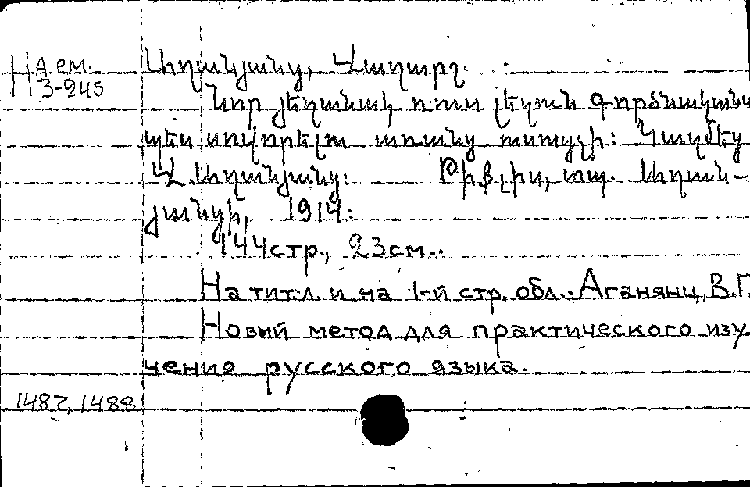 На ем.
3-245
Աղանյանց, Վաղարշ.
Նոր յեղանակ ռուս լեզուն գործնականա
պես սովորելու առանց ուսուցչի: Կազմեց
Վ. Աղանյանց: Թիֆլիս, տպ. Աղան-
յանցի, 1914:
144 стр., 23 см..
На титл. и на 1-й стр. обл.: Аганянц, В.Г.
Новый метод для практического изу
чения русского языка.
1487, 1488